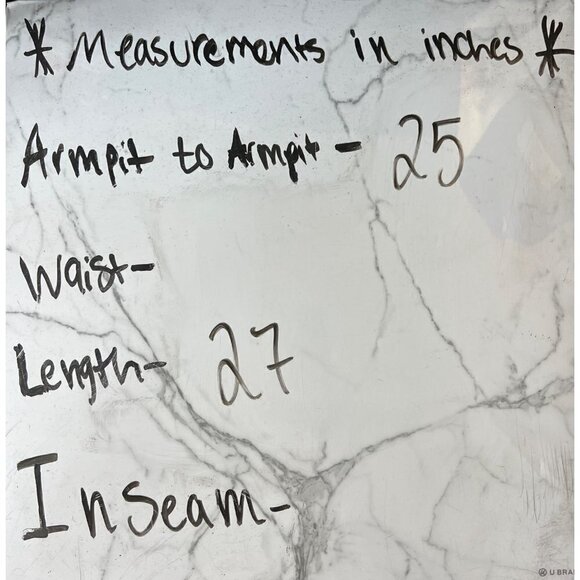 * Measurements in inches *
Armpit to Armpit - 25
Waist-
Length- 27
Inseam-
U BRA